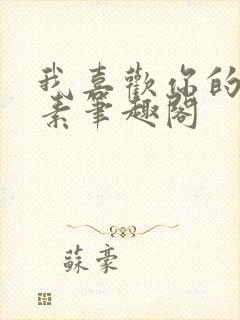 我喜歡你的
素筆趣閣
蘇豪